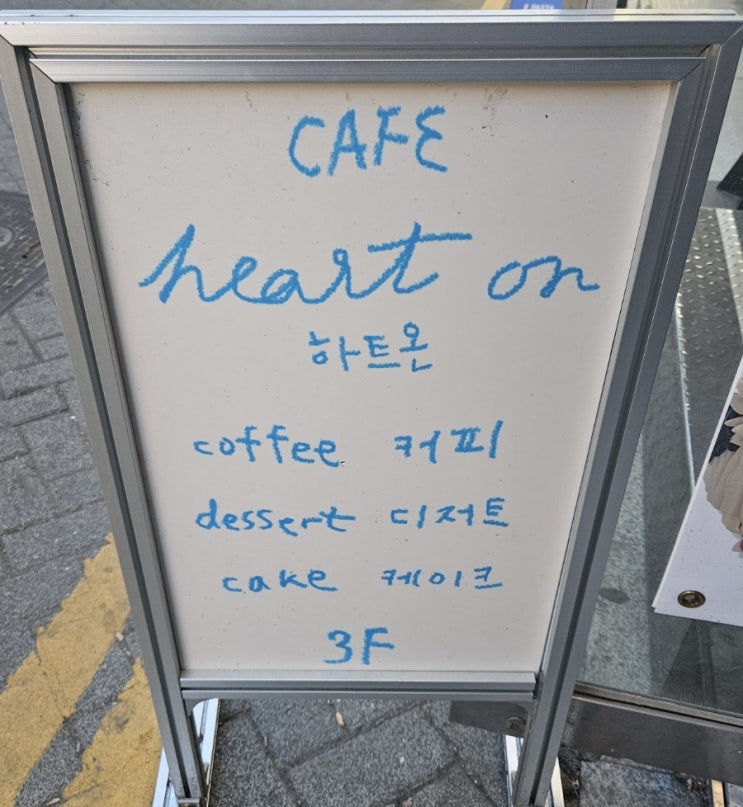 CAFE
heart on
하트온
coffee 커피
dessert 디저트
cake 케이크
3F